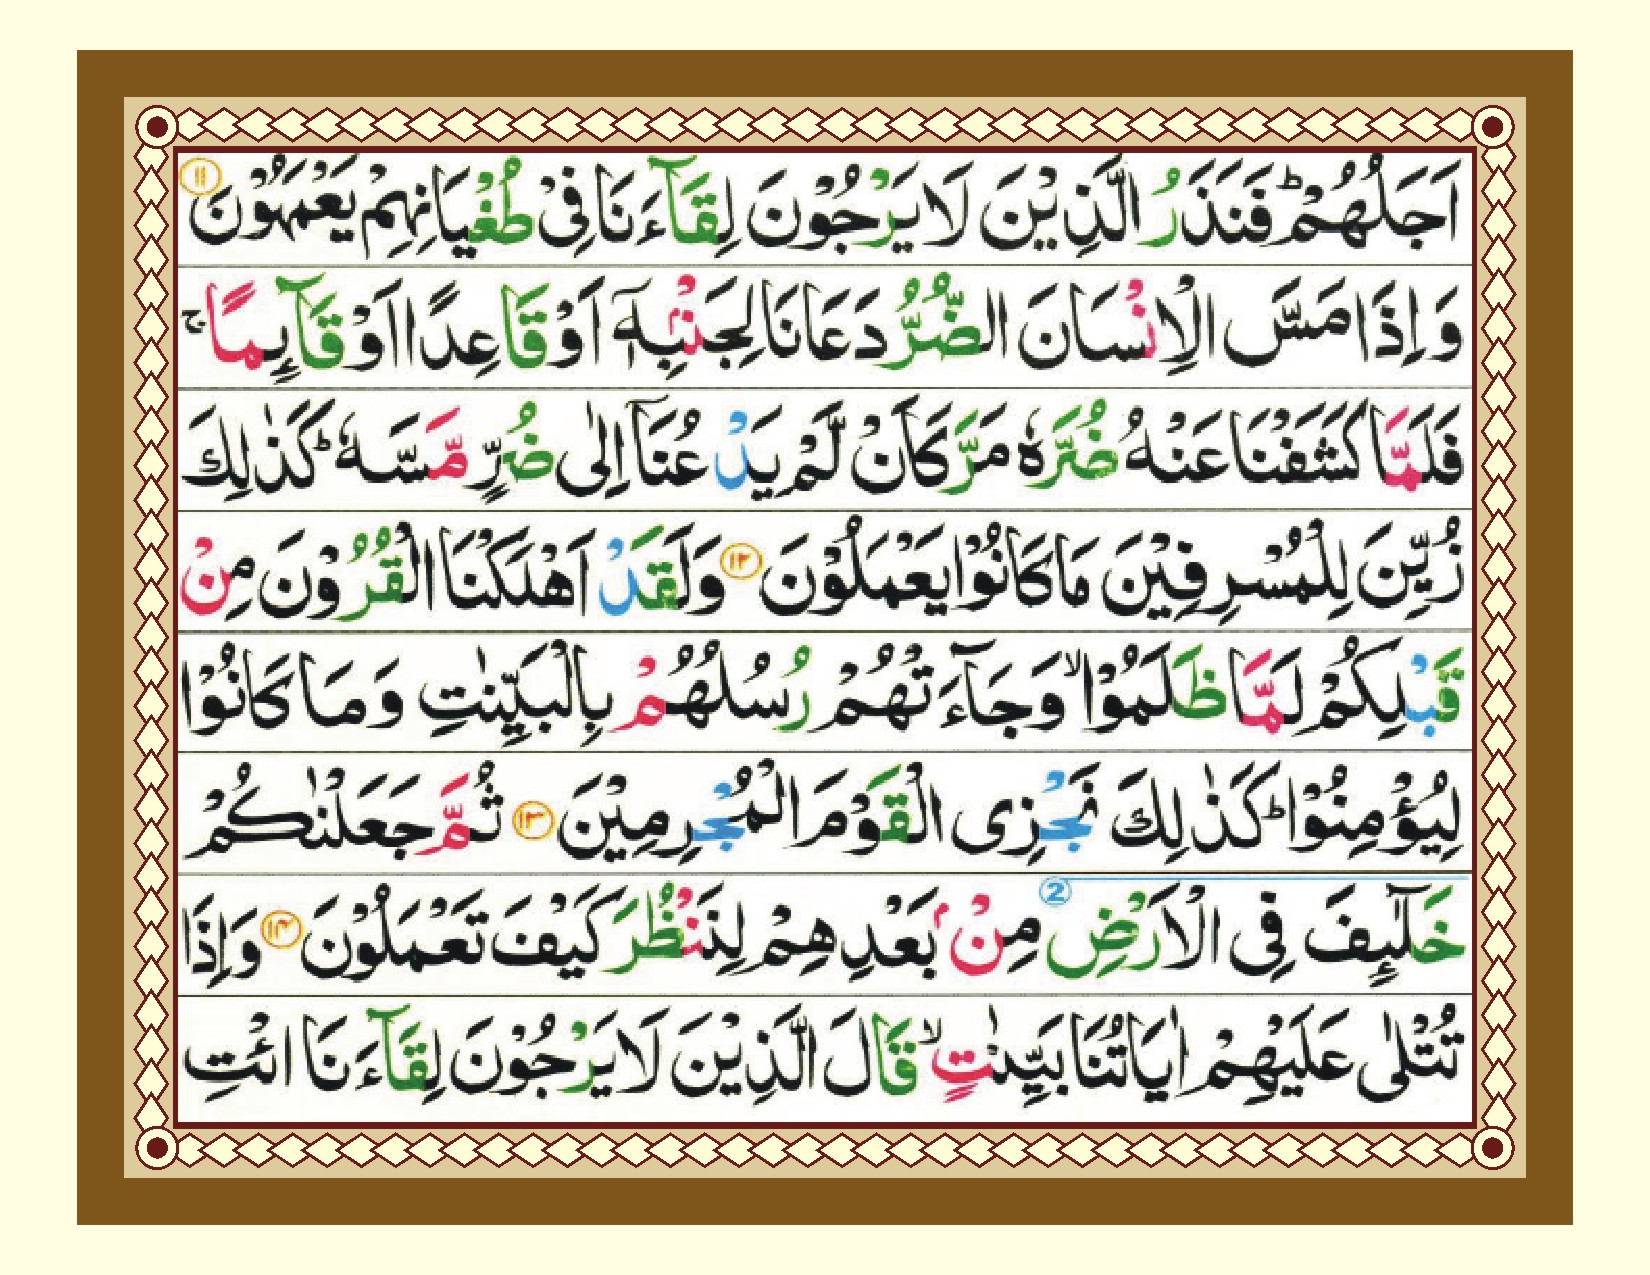 اَجَلُهُمْ ؕ فَنَذَرُ الَّذِيْنَ لَا يَرْجُوْنَ لِقَآءَنَا فِىْ طُغْيَانِهِمْ يَعْمَهُوْنَ ۝۱۱
وَاِذَا مَسَّ الْاِنْسَانَ الضُّرُّ دَعَانَا لِجَنْۢبِهٖۤ اَوْ قَاعِدًا اَوْ قَآٮِٕمًا ۚ
فَلَمَّا كَشَفْنَا عَنْهُ ضُرَّهٗ مَرَّ كَاَنْ لَّمْ يَدْعُنَاۤ اِلٰى ضُرٍّ مَّسَّهٗ ؕ كَذٰلِكَ
زُيِّنَ لِلْمُسْرِفِيْنَ مَا كَانُوْا يَعْمَلُوْنَ ۝۱۲ وَلَقَدْ اَهْلَكْنَا الْقُرُوْنَ مِنْ
قَبْلِكُمْ لَمَّا ظَلَمُوْا ۙ وَجَآءَتْهُمْ رُسُلُهُمْ بِالْبَيِّنٰتِ وَمَا كَانُوْا
لِيُؤْمِنُوْا ؕ كَذٰلِكَ نَجْزِى الْقَوْمَ الْمُجْرِمِيْنَ ۝۱۳ ثُمَّ جَعَلْنٰكُمْ
خَلٰٓٮِٕفَ فِى الْاَرْضِ 2 مِنْۢ بَعْدِهِمْ لِنَنْظُرَ كَيْفَ تَعْمَلُوْنَ ۝۱۴ وَاِذَا
تُتْلٰى عَلَيْهِمْ اٰيَاتُنَا بَيِّنٰتٍ ۙ قَالَ الَّذِيْنَ لَا يَرْجُوْنَ لِقَآءَنَا ائْتِ